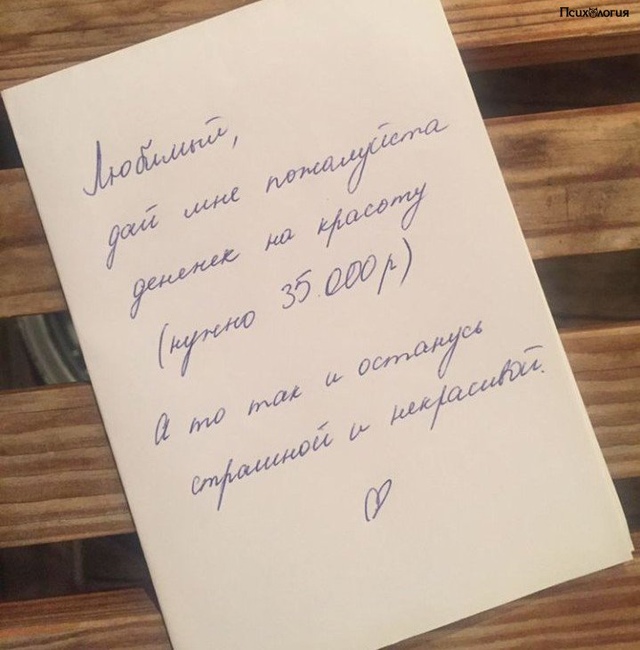 Психология
Любимый,
дай мне пожалуйста
дененек на красоту
(нужно 35.000 р)
А то так и останусь
страшной и некрасивой.